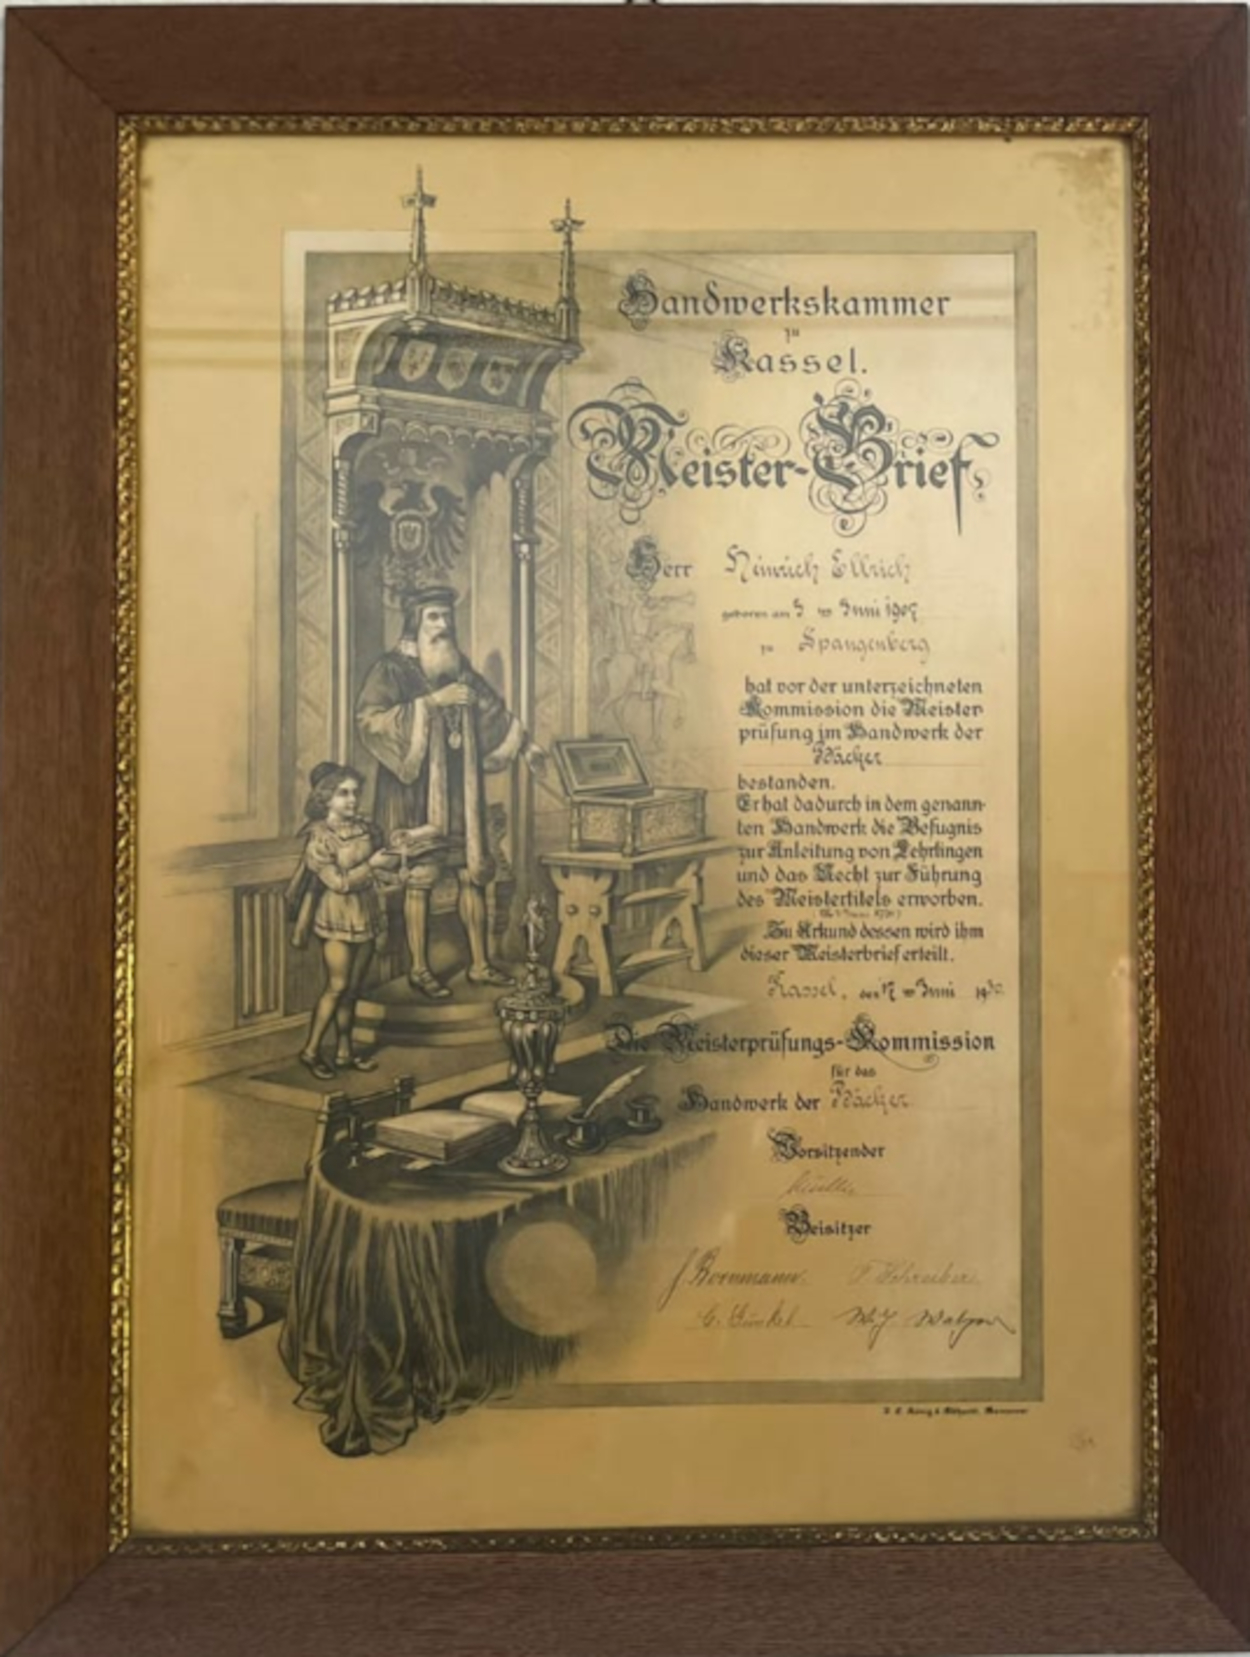 Handwerkskammer
zu
Kassel.
Meister-Brief
Herr Heinrich Ellrich
geboren am 3 ten Juni 1907
zu Spangenberg
hat vor der unterzeichneten
Kommission die Meister
prüfung im Handwerk der
Bäcker
bestanden.
Er hat dadurch in dem genann-
ten Handwerk die Befugnis
zur Anleitung von Lehrlingen
und das Recht zur Führung
des Meistertitels erworben.
Zu Urkund dessen wird ihm
dieser Meisterbrief erteilt.
Kassel, den ten Juni 19
Die Meisterprüfungs-Kommission
für das
Handwerk der Bäcker
Vorsitzender
Beisitzer
J. Bornmann F. Schreiber